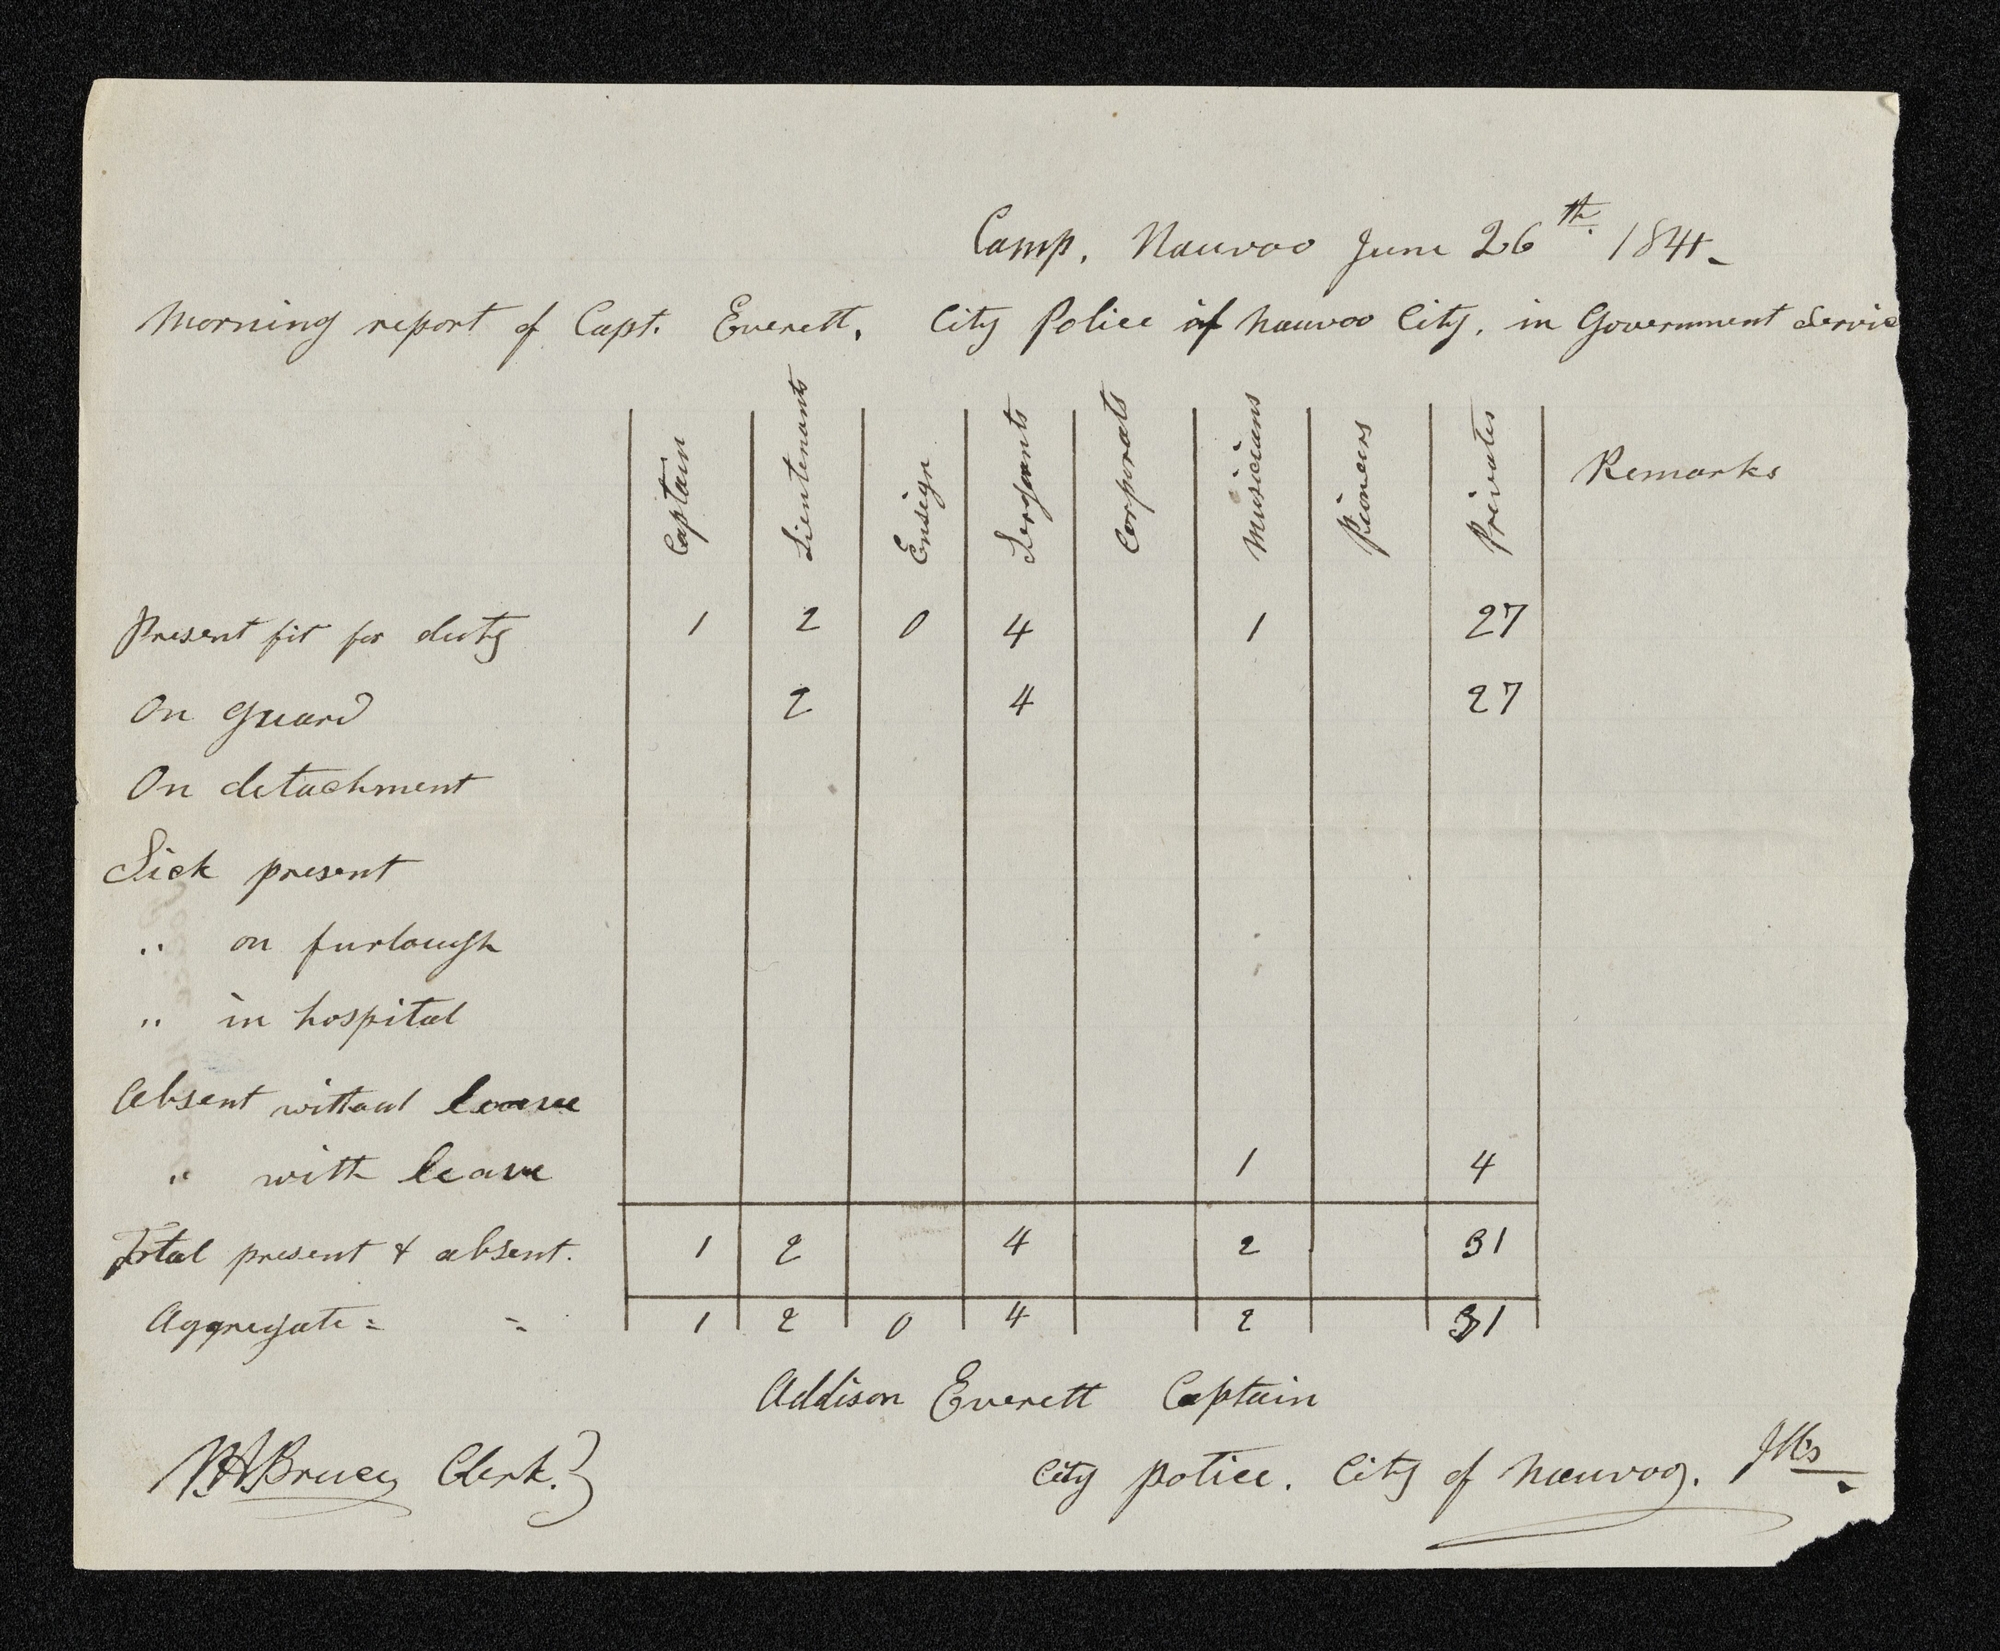 Camp. Nauvoo June 26th. 184
Morning report of Capt. Everett. City Police of Nauvoo City. in Government Servic
Captain Lieutenants Ensign Sergeants Corporals Musicians Pioneers Privates Remarks
Present fit for duty 1 2 0 4 1 27
On guard 2 4 27
On detachment
Sick present
" on furlough
" in hospital
Absent without leave
" with leave 1 4
Total present & absent. 1 2 4 2 31
Aggregate = = 1 2 0 4 2 31
Addison Everett Captain
Bruce Clerk.
City police. City of Nauvoo. Ills